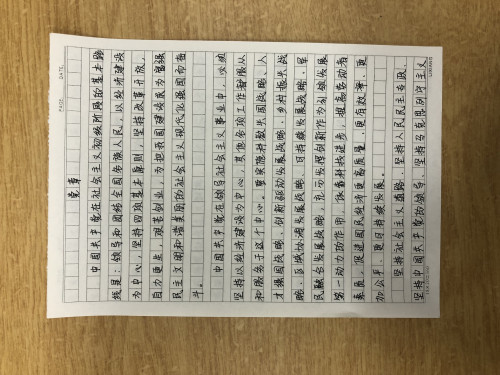 PAGE: DATE:
党章
中国共产党在社会主义初级阶段的基本路
线是：领导和团结全国各族人民，以经济建设
为中心，坚持四项基本原则，坚持改革开放，
自力更生，艰苦创业，为把我国建设成为富强
民主文明和谐美丽的社会主义现代化强国而奋
斗。
中国共产党在领导社会主义事业中，必须
坚持以经济建设为中心，其他各项工作都服从
和服务于这个中心。要实施科教兴国战略、人
才强国战略、创新驱动发展战略、乡村振兴战
略、区域协调发展战略、可持续发展战略、军
民融合发展战略，充分发挥创新作为引领发展
第一动力的作用，依靠科技进步，提高劳动者
素质，促进国民经济更高质量、更有效率、更
加公平、更可持续发展。
坚持社会主义道路、坚持人民民主专政、
坚持中国共产党的领导、坚持马克思列宁主义